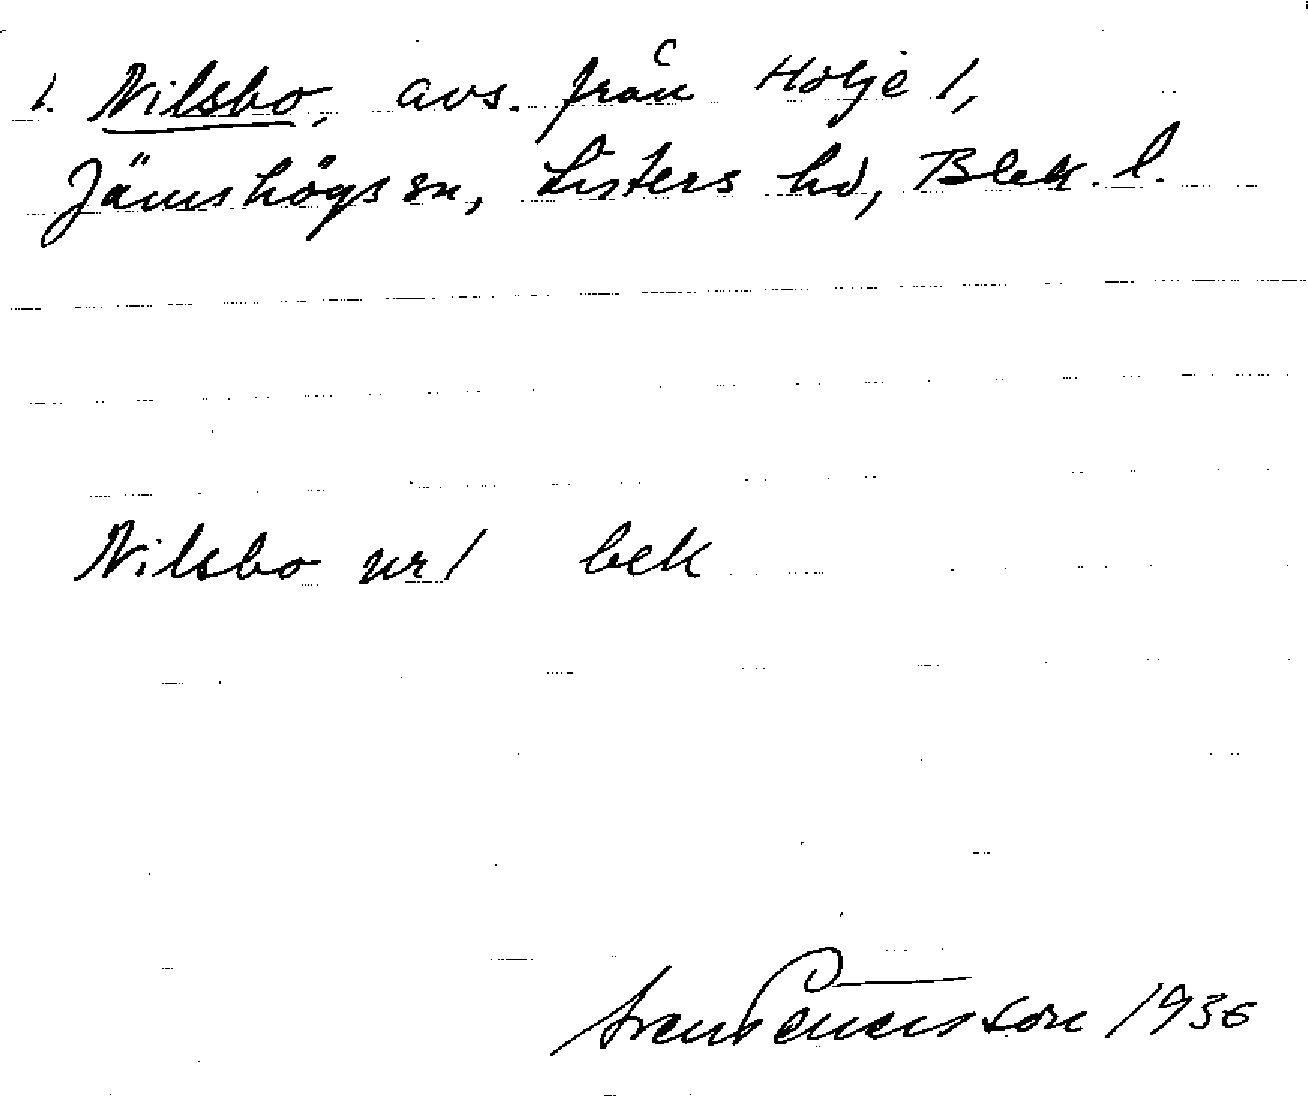 1. Nilsbo, avs. från Holje 1,
Jämshögs sn, Listers hd, Blek. l.
Nilsbo nr 1 bek
1936